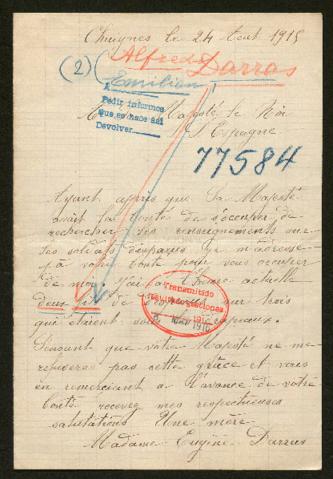 Chuynes le 24 Aout 1915
(2) (Alfred Darras
Emilien
A
Pedir informes
que se hace así
Devolver
Majesté le Roi
d'Espagne
77584
Ayant appris que Sa Majesté
avait la bonté de s'occuper de
rechercher des renseignements sur
les soldats disparus je m'adresse
à votre bonté pour vous occuper
de moi j'ai à l'heure actuelle
deux fils de disparus sur trois
que étaient sous les drapeaux.
Transmitido
reclamaciones
1916
Sachant que votre Majesté ne me
refusera pas cette grâce et vous
en remerciant a l'avance de votre
bonté recevez mes respectueuses
salutations Une mère
Madame Eugène Darras